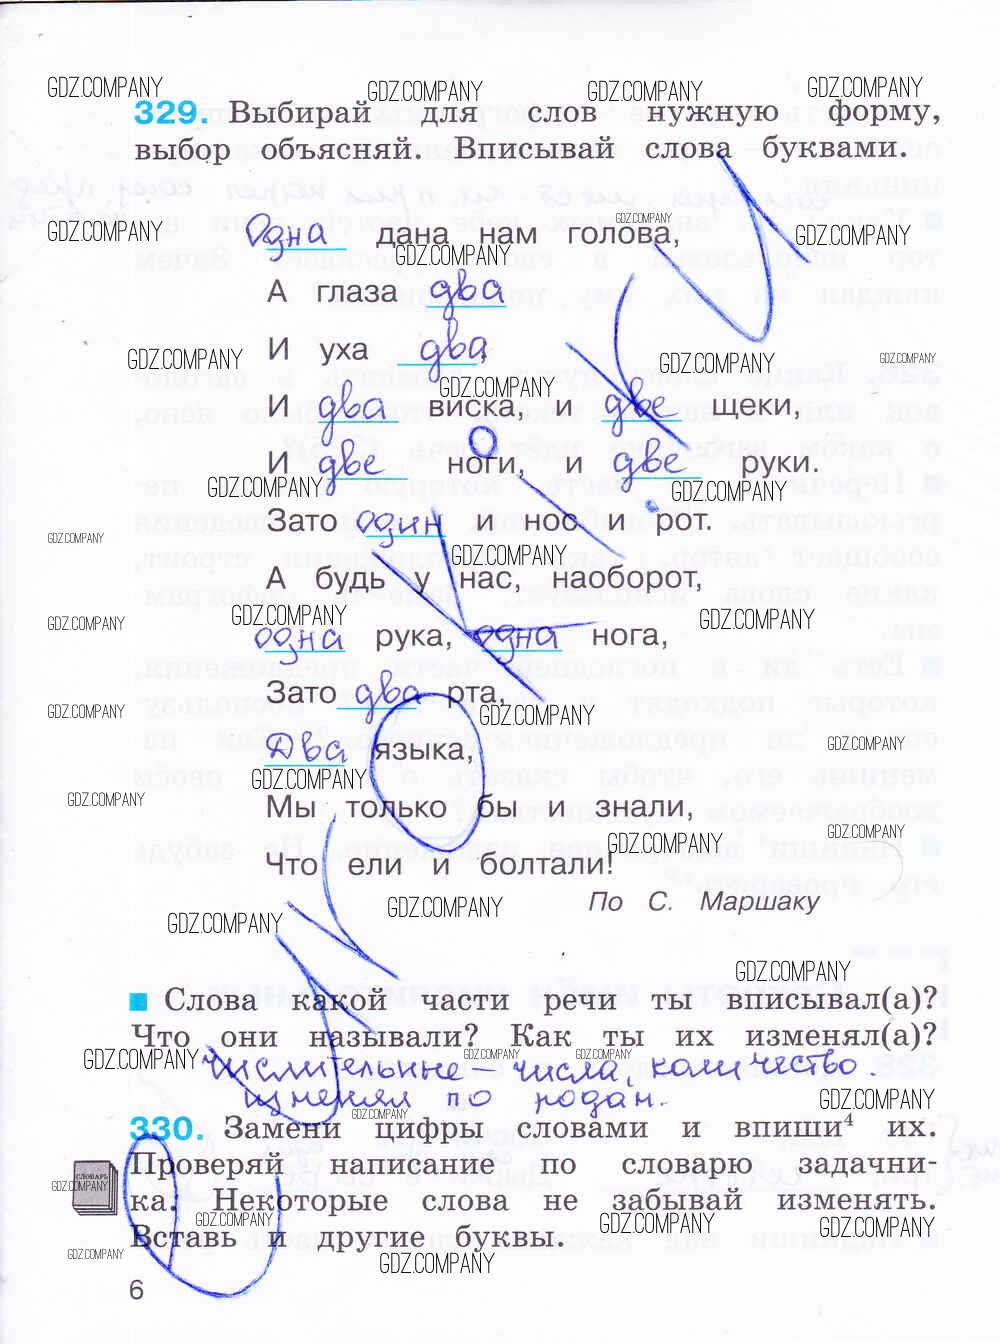 329. Выбирай для слов нужную форму,
выбор объясняй. Вписывай слова буквами.
Одна дана нам голова,
А глаза два
И уха два,
И два виска, и две щеки,
И две ноги, и две руки.
Зато один и нос и рот.
А будь у нас, наоборот,
одна рука, одна нога,
Зато два рта,
Два языка,
Мы только бы и знали,
Что ели и болтали!
По С. Маршаку
Слова какой части речи ты вписывал(а)?
Что они называли? Как ты их изменял(а)?
числительные – числа, количество
изменял по родам.
330. Замени цифры словами и впиши⁴ их.
Проверяй написание по словарю задачни-
ка. Некоторые слова не забывай изменять.
Вставь и другие буквы.
СЛОВАРЬ
6
GDZ.COMPANY